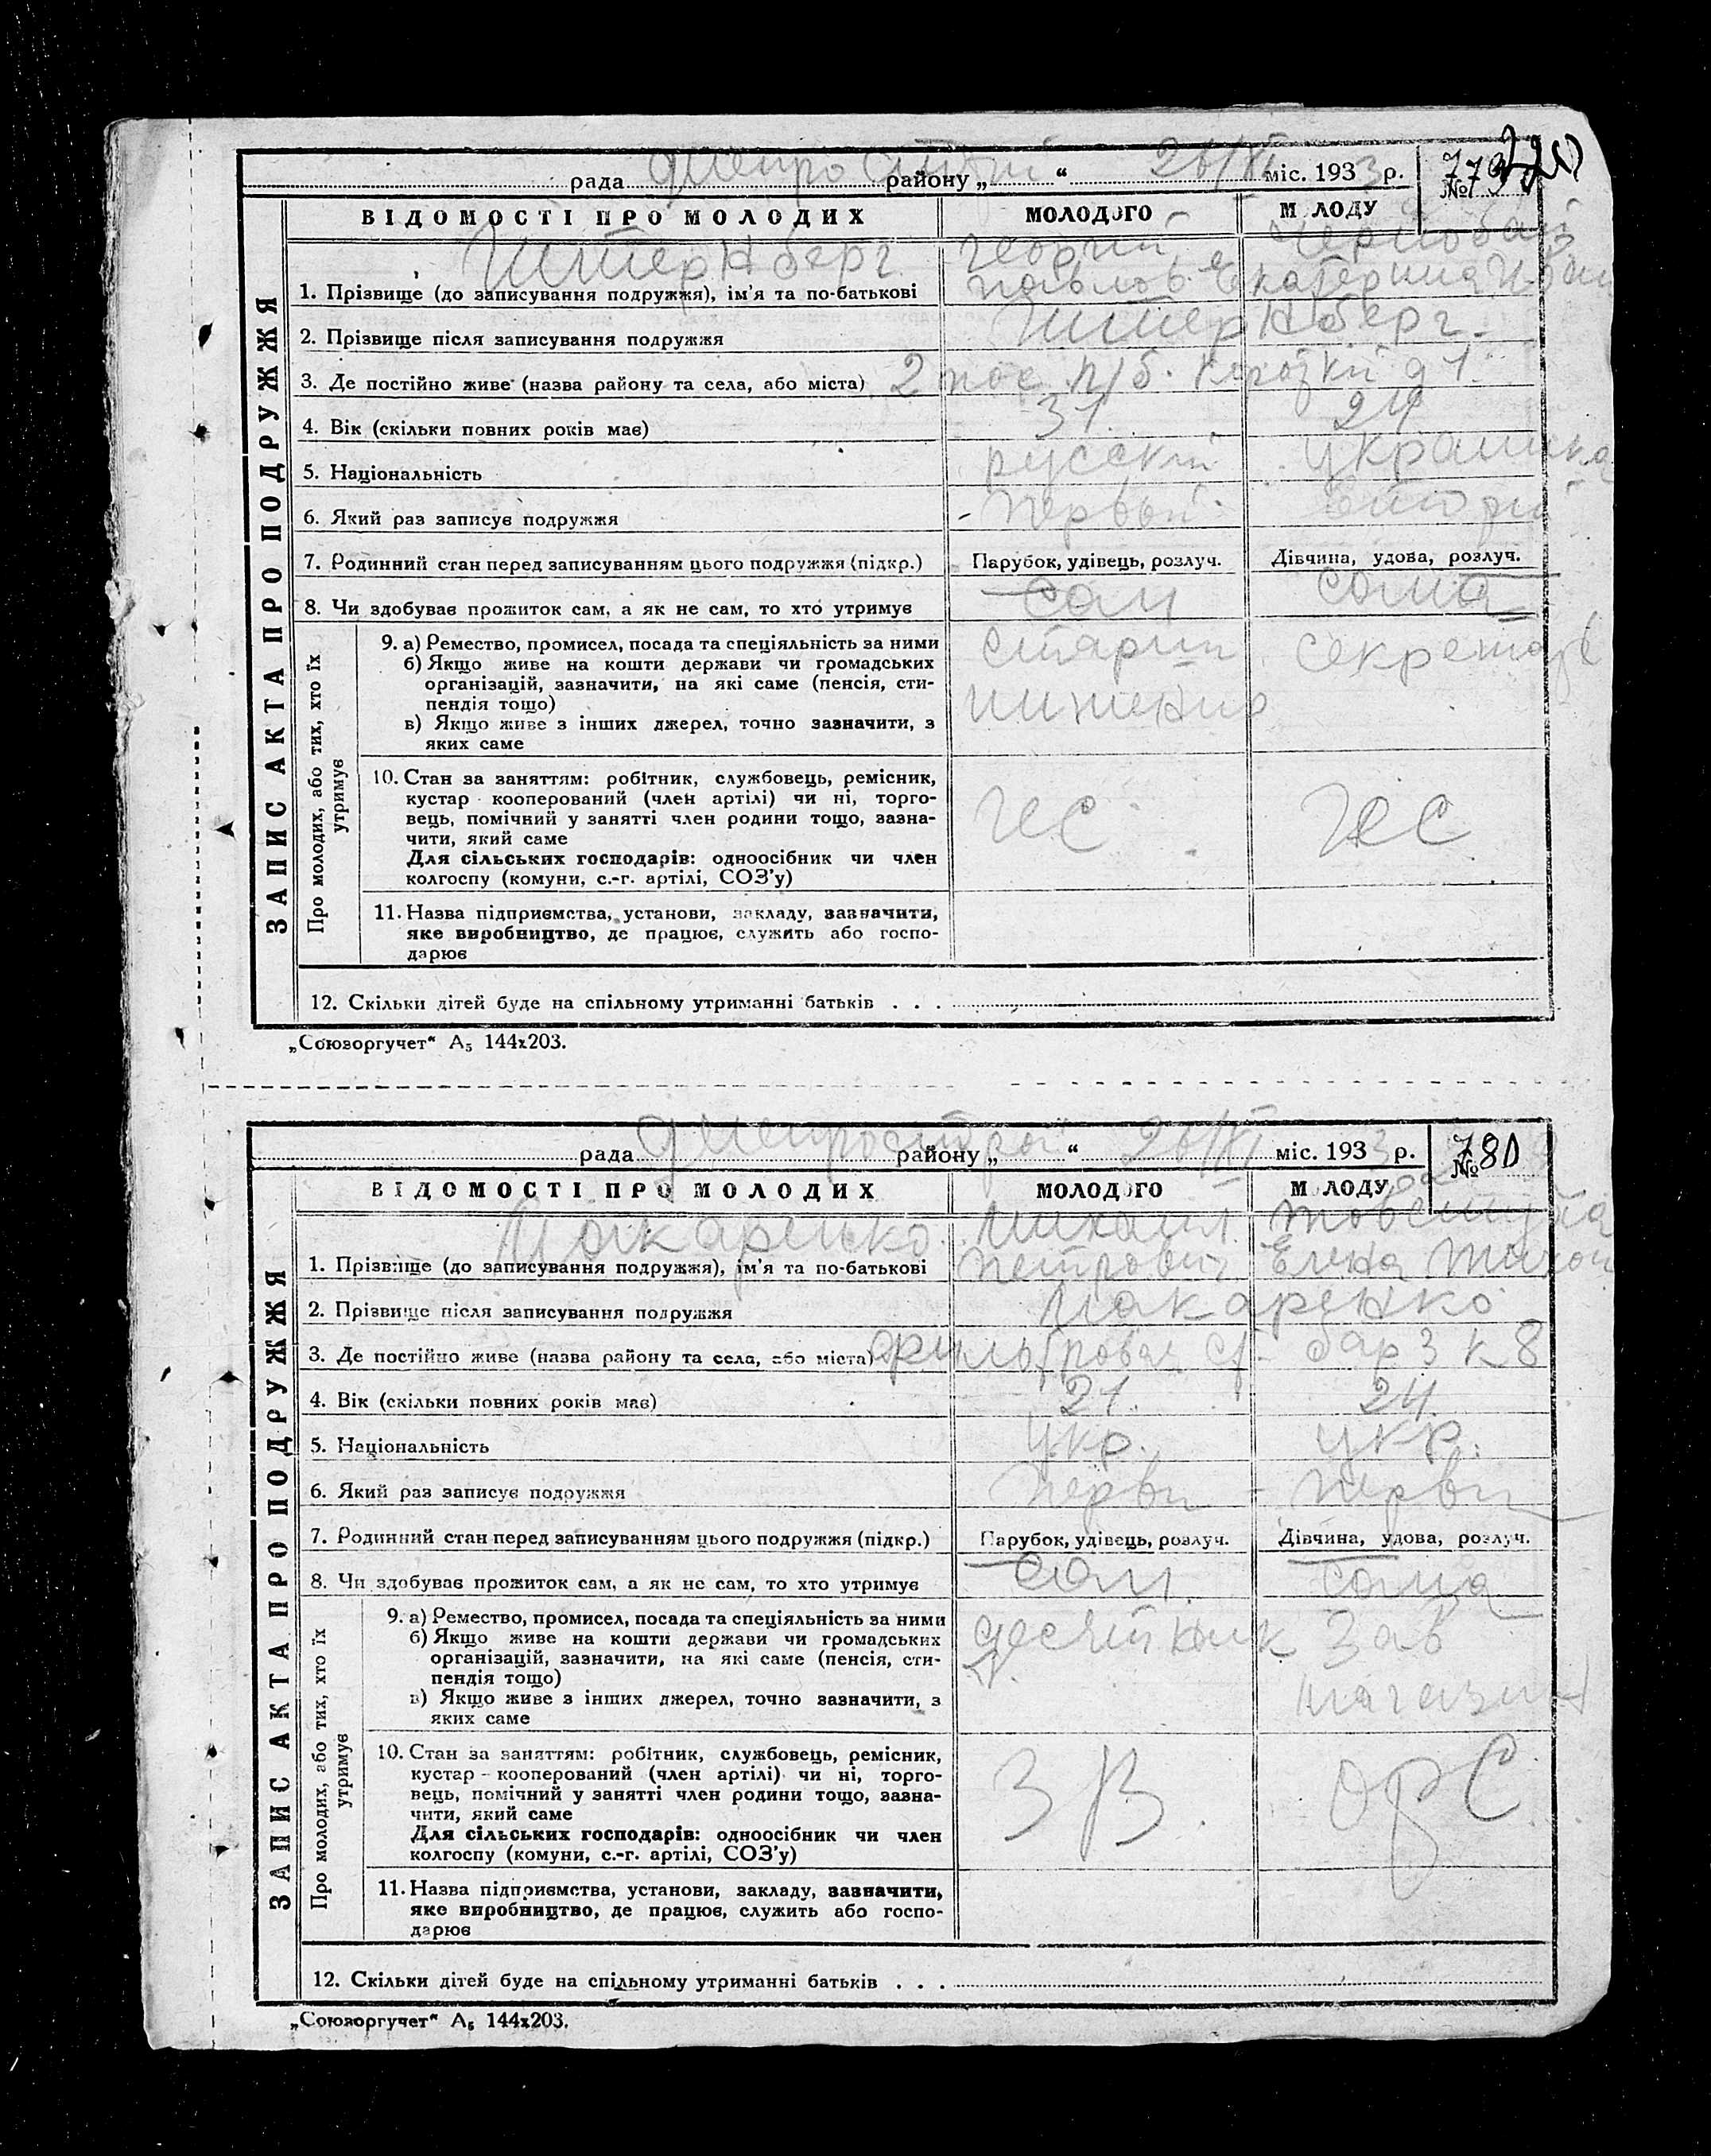 рада Днепрострой району „ “ 26/XI міс. 1933 р. № 779
ВІДОМОСТІ ПРО МОЛОДИХ МОЛОДОГО МОЛОДУ
Штернберг Георгий
1. Прізвище (до записування подружжя), ім'я та по-батькові Павлов. Екатерина
2. Прізвище після записування подружжя Штернберг
3. Де постійно живе (назва району та села, або міста) 2 пос д 1
4. Вік (скільки повних років має) 31 24
5. Національність русский украинка
6. Який раз записує подружжя первый вторый
7. Родинний стан перед записуванням цього подружжя (підкр.) Парубок, удівець, розлуч. Дівчина, удова, розлуч.
8. Чи здобуває прожиток сам, а як не сам, то хто утримує сам сама
ЗАПИС АКТА ПРО ПОДРУЖЖЯ
Про молодих, або тих, хто їх утримує
9. а) Ремество, промисел, посада та спеціяльність за ними старш секретарь
б) Якщо живе на кошти держави чи громадських
організацій, зазначити, на які саме (пенсія, сти-
пендія тощо) инженир
в) Якщо живе з інших джерел, точно зазначити, з
яких саме
10. Стан за заняттям: робітник, службовець, ремісник,
кустар кооперований (член артілі) чи ні, торго-
вець, помічний у занятті член родини тощо, зазна-
чити, який саме
Для сільських господарів: одноосібник чи член
колгоспу (комуни, с.-г. артілі, СОЗ'у)
11. Назва підприємства, установи, закладу, зазначити,
яке виробництво, де працює, служить або госпо-
дарює
12. Скільки дітей буде на спільному утриманні батьків . . .
„Союзоргучет“ А₅ 144х203.
рада Днепрострой району „ “ 26/XI міс. 1933 р. № 780
ВІДОМОСТІ ПРО МОЛОДИХ МОЛОДОГО МОЛОДУ
Макаренко Михаил
1. Прізвище (до записування подружжя), ім'я та по-батькові Петрович Елена
2. Прізвище після записування подружжя Макаренко
3. Де постійно живе (назва району та села, або міста) бар 3 к 8
4. Вік (скільки повних років має) 21. 24.
5. Національність укр. укр.
6. Який раз записує подружжя перви перви
7. Родинний стан перед записуванням цього подружжя (підкр.) Парубок, удівець, розлуч. Дівчина, удова, розлуч.
8. Чи здобуває прожиток сам, а як не сам, то хто утримує сам сама
ЗАПИС АКТА ПРО ПОДРУЖЖЯ
Про молодих, або тих, хто їх утримує
9. а) Ремество, промисел, посада та спеціяльність за ними десятник Зав
б) Якщо живе на кошти держави чи громадських
організацій, зазначити, на які саме (пенсія, сти-
пендія тощо) магазин
в) Якщо живе з інших джерел, точно зазначити, з
яких саме
10. Стан за заняттям: робітник, службовець, ремісник,
кустар - кооперований (член артілі) чи ні, торго-
вець, помічний у занятті член родини тощо, зазна-
чити, який саме ОРС
Для сільських господарів: одноосібник чи член
колгоспу (комуни, с.-г. артілі, СОЗ'у)
11. Назва підприємства, установи, закладу, зазначити,
яке виробництво, де працює, служить або госпо-
дарює
12. Скільки дітей буде на спільному утриманні батьків . . .
„Союзоргучет“ А₅ 144х203.